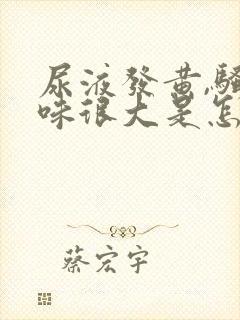 尿液發黄,騷
味很大是怎
蔡宏宇